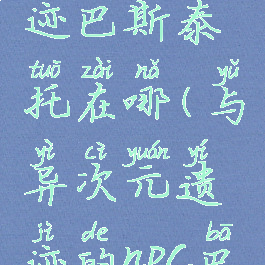 迹巴斯泰
tuō zài nǎ yǔ
托在哪(与
yì cì yuán yí
异次元遗
jì de bā
迹的NPC巴